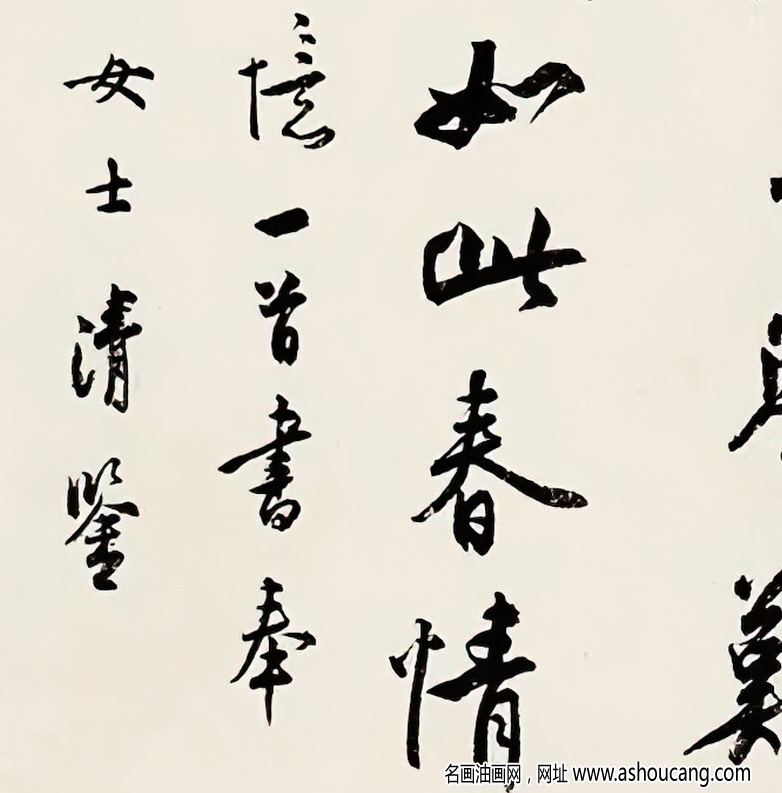 如此春情
憶一首書奉
女士清鑒
名画油画网，网址 www.ashoucang.com